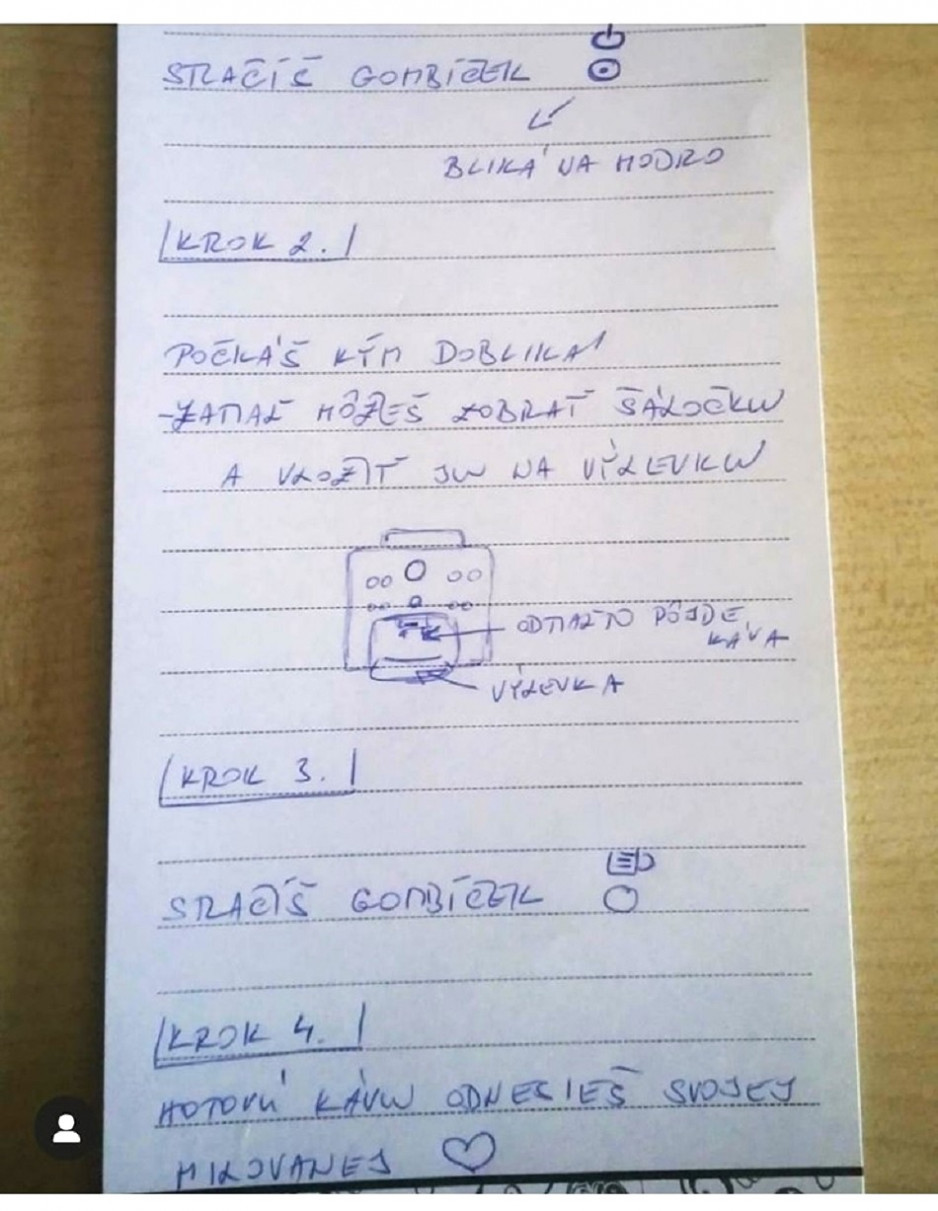 STLAČÍŠ GOMBÍČEK
BLIKÁ NA MODRO
KROK 2.
POČKÁŠ KÝM DOBLIKÁ
-ZATIAĽ MÔŽEŠ ZOBRAŤ ŠÁLOČKU
A VLOŽIŤ JU NA VÝLEVKU
ODTIAĽTO PÔJDE
KÁVA
VÝLEVKA
KROK 3.
STLAČÍŠ GOMBÍČEK
KROK 4.
HOTOVÚ KÁVU ODNESIEŠ SVOJEJ
MILOVANEJ